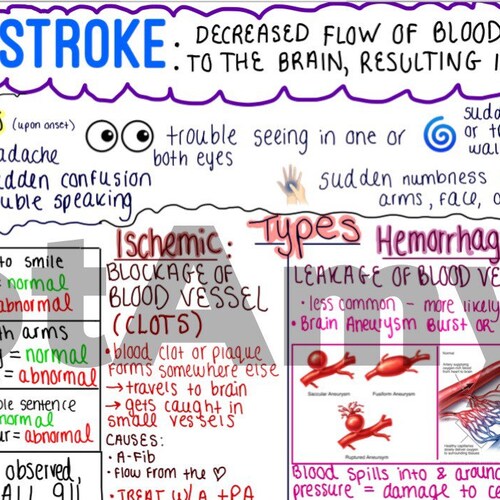 STROKE: DECREASED FLOW OF BLOOD
TO THE BRAIN, RESULTING I
(upon onset)
adache
dden confusion
uble speaking
trouble seeing in one or
both eyes
sudd
or t
wal
sudden numbness
arms, face, o
Types
to smile
= normal
abnormal
th arms
y = normal
= abnormal
ple sentence
normal
ur = abnormal
observed,
ALL 911
Ischemic:
BLOCKAGE OF
BLOOD VESSEL
(CLOTS)
• blood clot or plaque
forms somewhere else
→ travels to brain
→ gets caught in
small vessels
CAUSES:
• A-Fib
• Flow from the ♡
• TREAT W/A tPA
Hemorrhag
LEAKAGE OF BLOOD VE
• less common - more likely
• Brain Aneurysm Burst or
Saccular Aneurysm
Fusiform Aneurysm
Ruptured Aneurysm
Normal
Blood spills into & around
pressure = damage to ce
otAmy